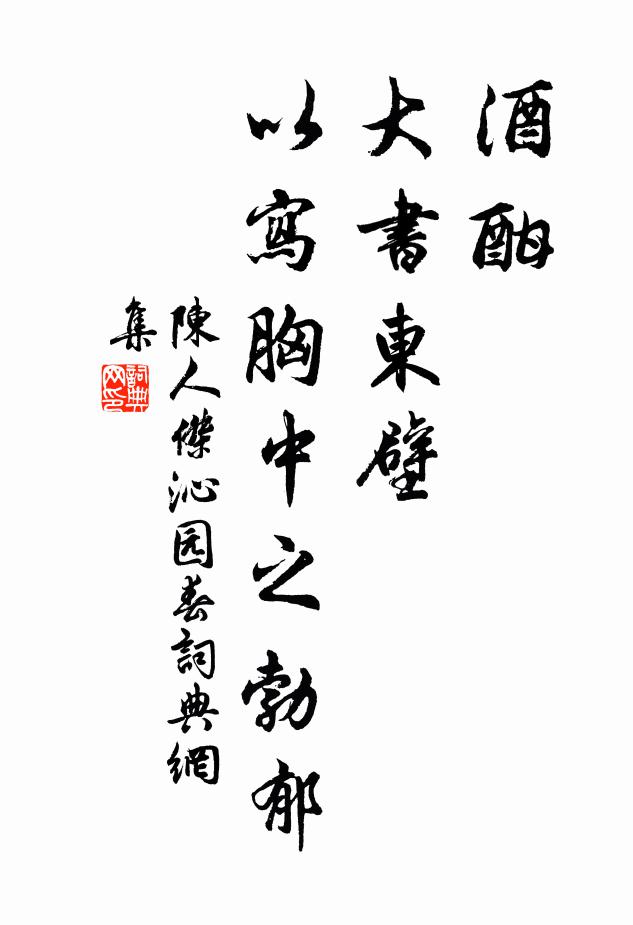 酒酣
大書東壁
以寫胸中之勃郁
陳人傑沁园春詞典網
集
詞典
网印